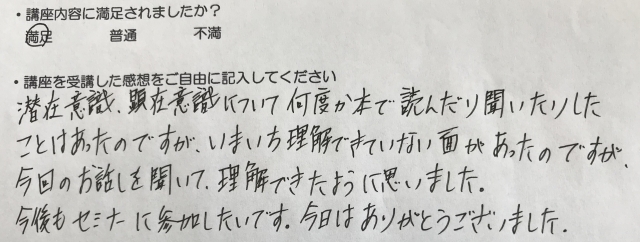 ・講座内容に満足されましたか？
満足 普通 不満
・講座を受講した感想をご自由に記入してください
潜在意識、顕在意識について何度か本で読んだり聞いたりした
ことはあったのですが、いまいち理解できていない面があったのですが、
今回のお話しを聞いて、理解できたように思いました。
今後もセミナーに参加したいです。今日はありがとうございました。